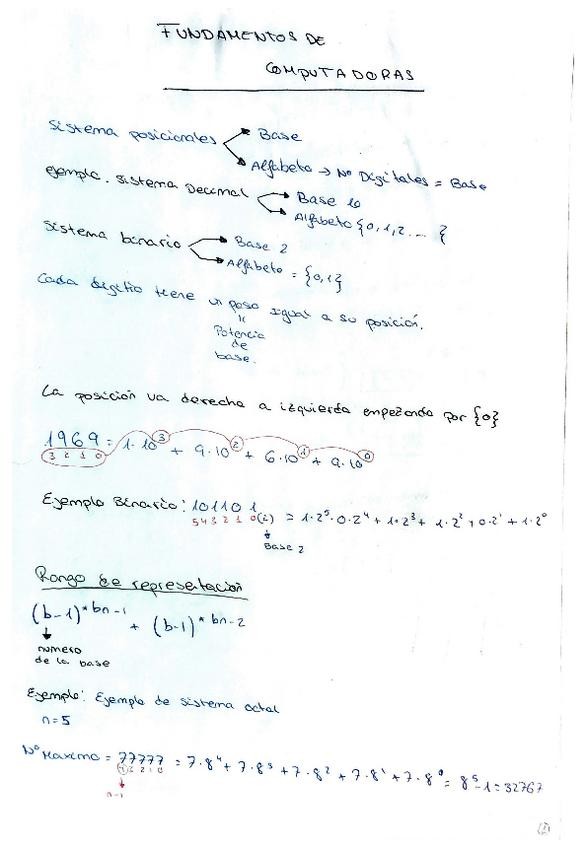 FUNDAMENTOS DE
COMPUTADORAS
Sistema posicionales → Base
→ Alfabeto → Nº Digitales = Base
ejemplo. sistema Decimal → Base 10
→ Alfabeto {0,1,2... {
Sistema binario → Base 2
→ Alfabeto = {0,1}
Cada digito tiene un peso igual a su posición.
"
Potencia
de
base.
La posición va derecha a izquierda empezando por {0}
1969 = 1·10³ + 9·10² + 6·10¹ + 9·10⁰
3 2 1 0
Ejemplo Binario: 101101 = 1·2⁵·0·2⁴ + 1·2³ + 1·2² + 0·2¹ + 1·2⁰
5 4 3 2 1 0 (2)
Base 2
Rango de representación
(b-1)*bn-1 + (b-1)*bn-2
numero
de la base
Ejemplo: Ejemplo de sistema octal
n=5
Nº Maximo = 77777 = 7·8⁴ + 7·8³ + 7·8² + 7·8¹ + 7·8⁰ = 8⁵-1 = 32767
4 3 2 1 0
n-1